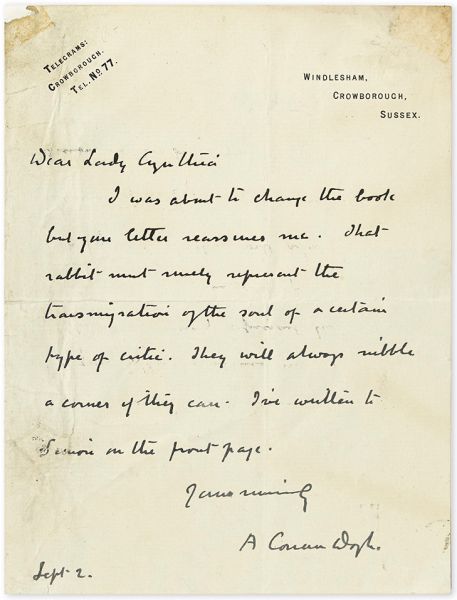 TELEGRAMS:
CROWBOROUGH.
TEL. NO 77.
WINDLESHAM,
CROWBOROUGH,
SUSSEX.
Dear Lady Cynthia
I was about to change the book
but your letter reassures me. That
rabbit must surely represent the
transmigration of the soul of a certain
type of critic. They will always nibble
a corner if they can. I've written to
Simon on the front page.
Yours sincerely
A Conan Doyle.
Sept 2.